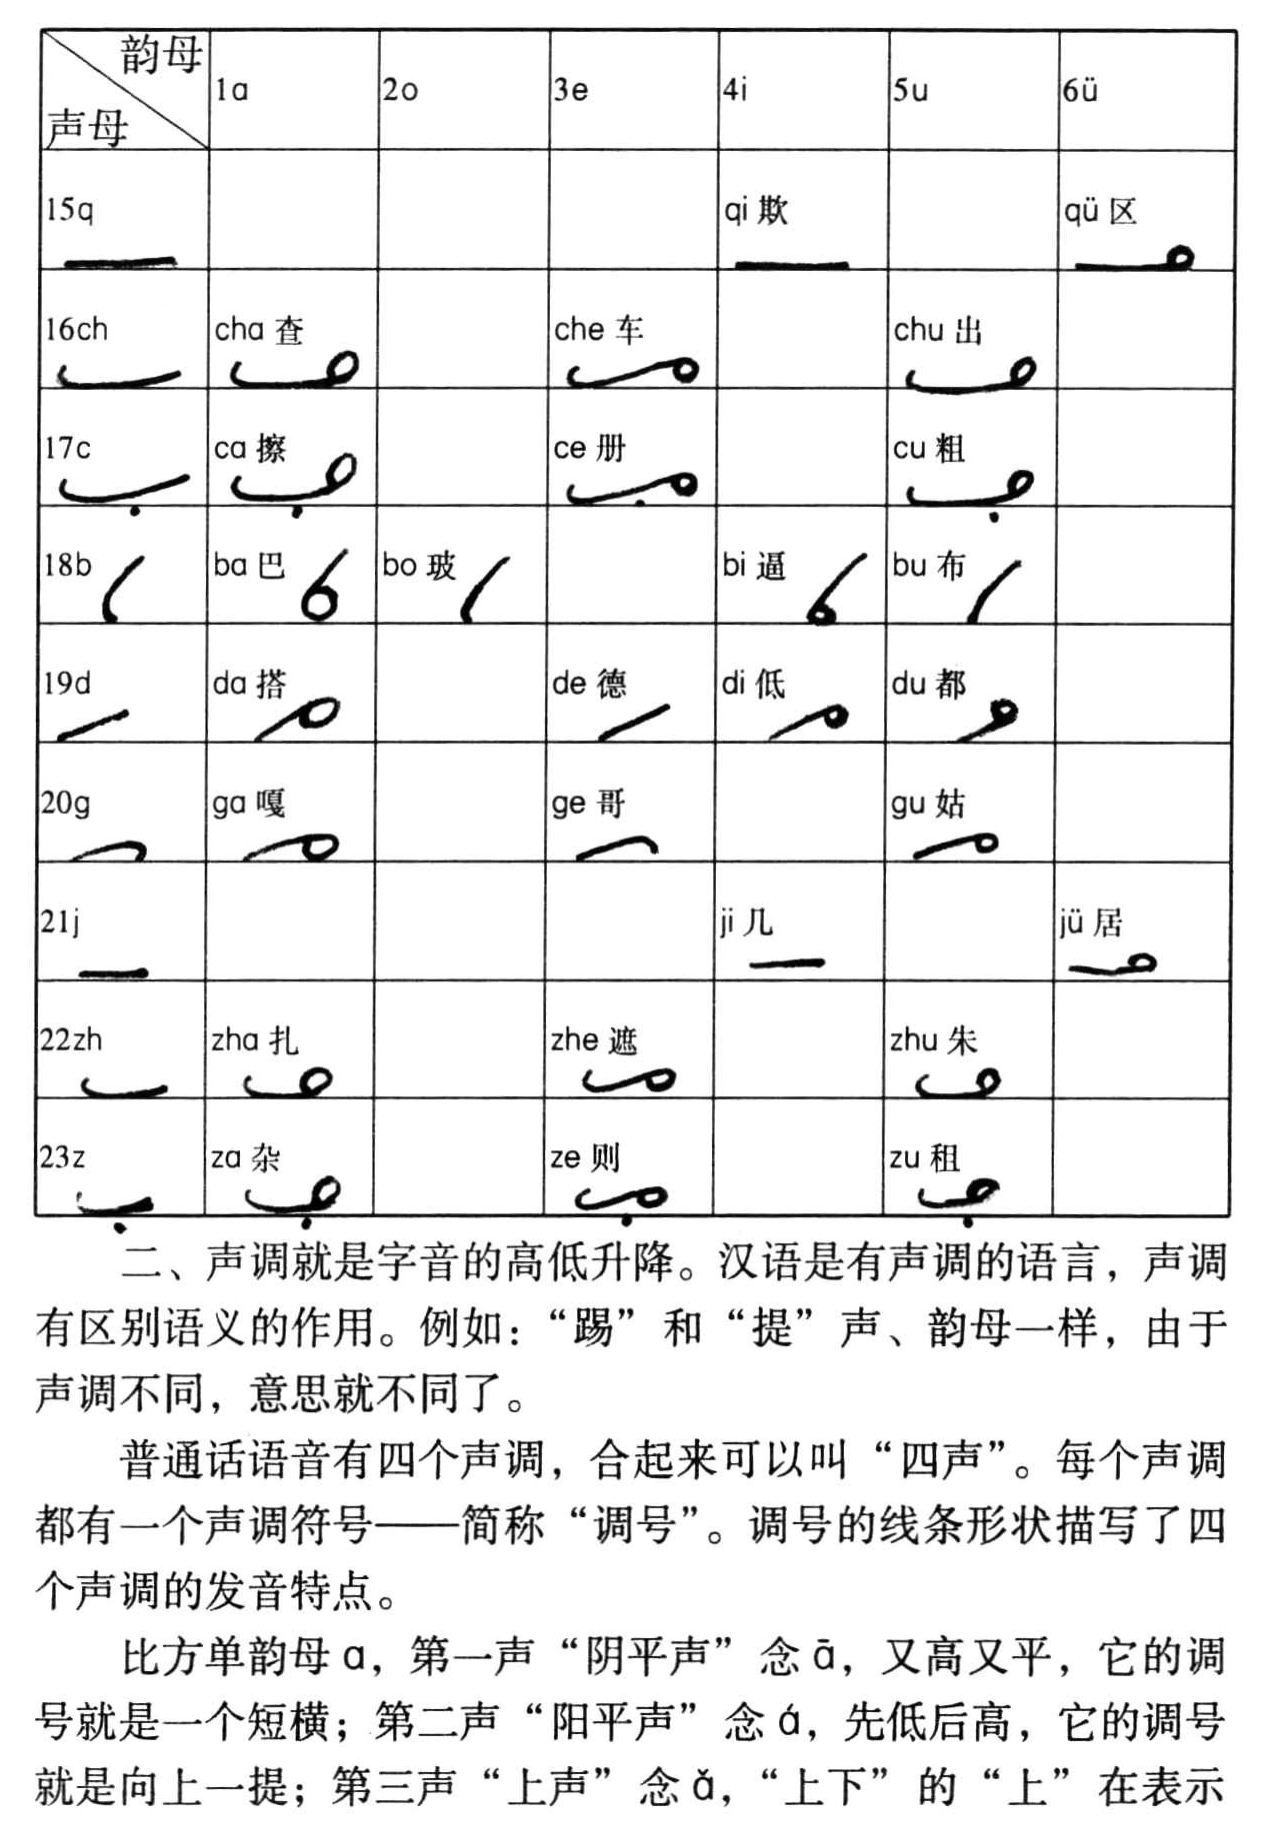 韵母
声母 1a 2o 3e 4i 5u 6ü
15q qi 欺 qü 区
16ch cha 查 che 车 chu 出
17c ca 擦 ce 册 cu 粗
18b ba 巴 bo 玻 bi 逼 bu 布
19d da 搭 de 德 di 低 du 都
20g ga 嘎 ge 哥 gu 姑
21j ji 几 jü 居
22zh zha 扎 zhe 遮 zhu 朱
23z za 杂 ze 则 zu 租
二、声调就是字音的高低升降。汉语是有声调的语言，声调
有区别语义的作用。例如：“踢”和“提”声、韵母一样，由于
声调不同，意思就不同了。
普通话语音有四个声调，合起来可以叫“四声”。每个声调
都有一个声调符号——简称“调号”。调号的线条形状描写了四
个声调的发音特点。
比方单韵母 a，第一声“阴平声”念 ā，又高又平，它的调
号就是一个短横；第二声“阳平声”念 á，先低后高，它的调号
就是向上一提；第三声“上声”念 ǎ，“上下”的“上”在表示